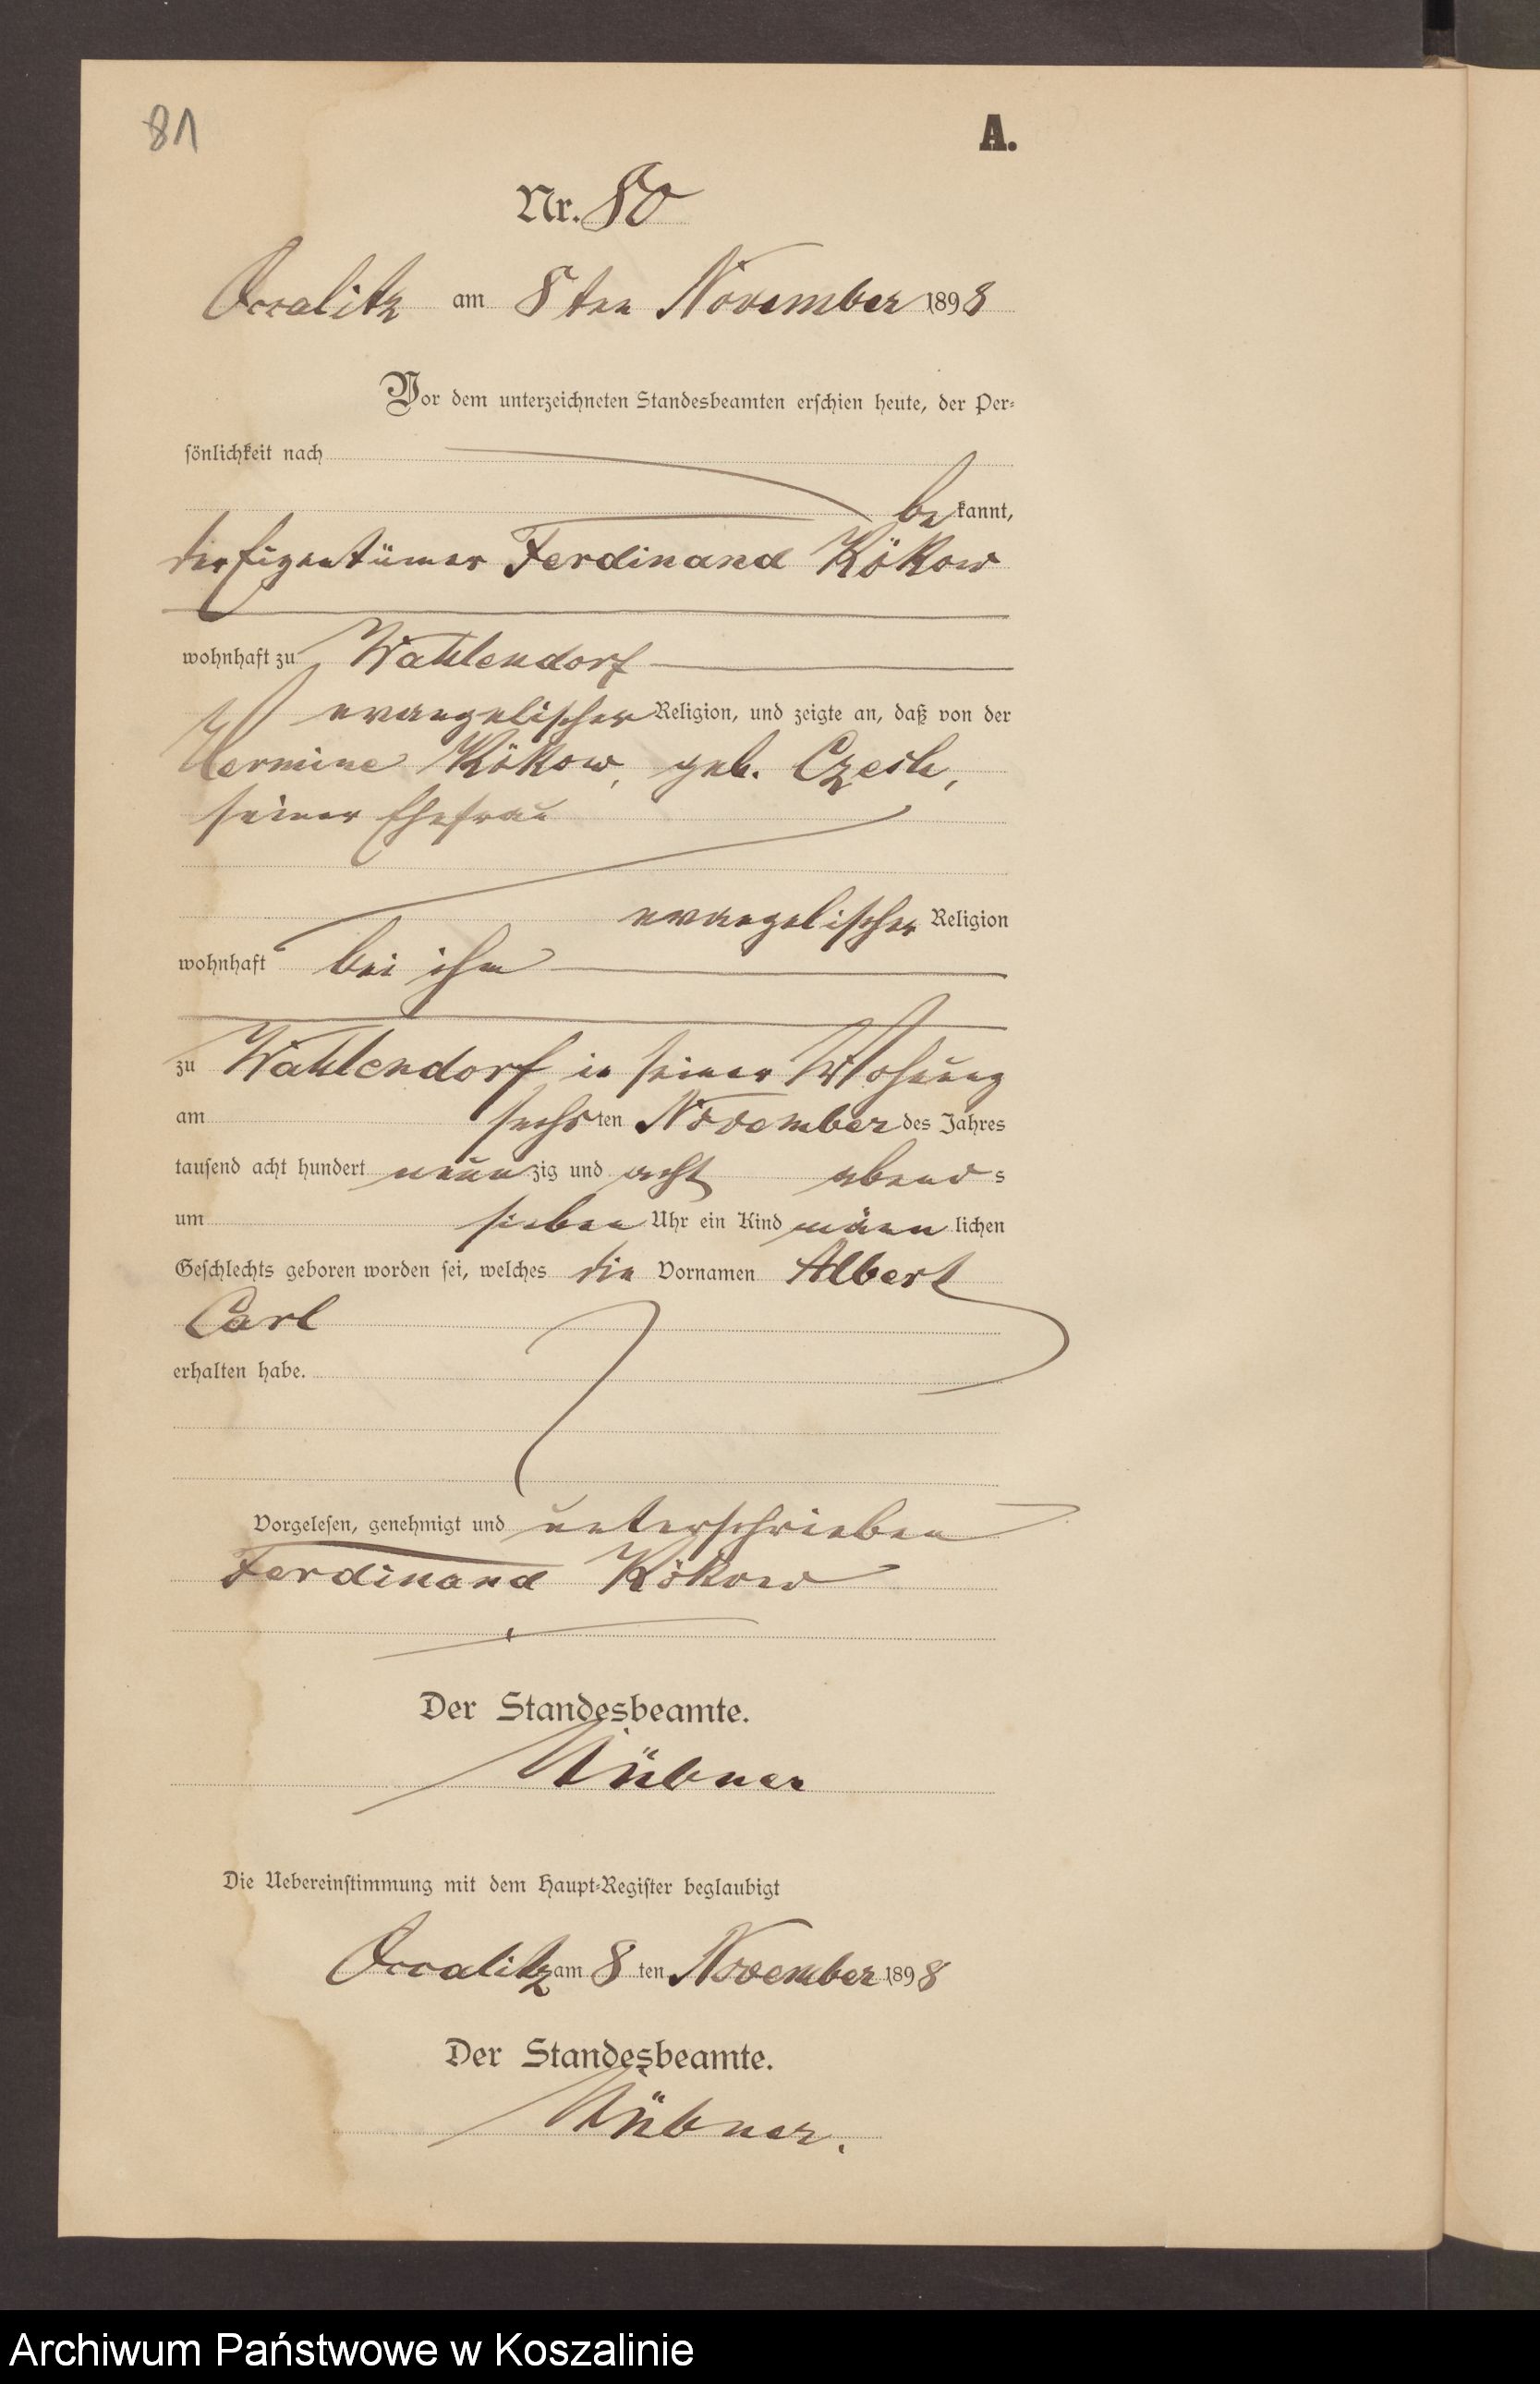 81
A.
Nr. 80
Occalitz am 8ten November 1898
Vor dem unterzeichneten Standesbeamten erschien heute, der Per-
sönlichkeit nach
bekannt,
der Eigentümer Ferdinand Kökow
wohnhaft zu Wahlendorf
evangelischer Religion, und zeigte an, daß von der
Hermine Kökow, geb. Czech,
seiner Ehefrau
evangelischer Religion
wohnhaft bei ihm
zu Wahlendorf in seiner Wohnung
am sechsten November des Jahres
tausend acht hundert neunzig und acht abends
um sieben Uhr ein Kind männlichen
Geschlechts geboren worden sei, welches die Vornamen Albert
Carl
erhalten habe.
Vorgelesen, genehmigt und unterschrieben
Ferdinand Kökow
Der Standesbeamte.
Hübner
Die Uebereinstimmung mit dem Haupt-Register beglaubigt
Occalitz am 8ten November 1898
Der Standesbeamte.
Hübner.
Archiwum Państwowe w Koszalinie